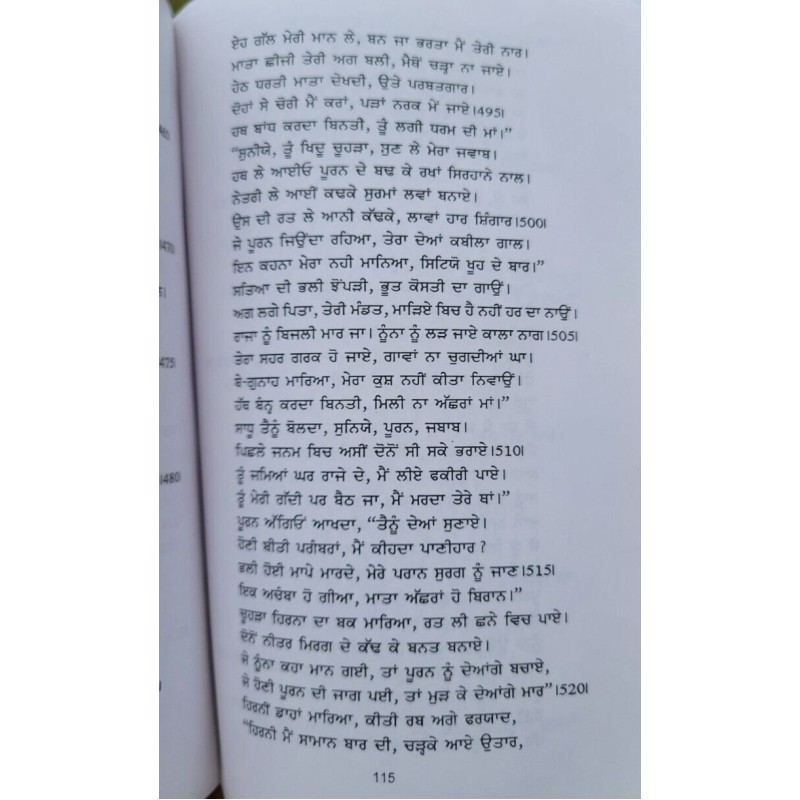 ਏਹ ਗੱਲ ਮੇਰੀ ਮਾਨ ਲੇ, ਬਨ ਜਾ ਭਰਤਾ ਮੈਂ ਤੇਰੀ ਨਾਰ।
ਮਾਤਾ ਛੀਜੀ ਤੇਰੀ ਅਗ ਬਲੀ, ਮੈਥੋਂ ਚੜ੍ਹਾ ਨਾ ਜਾਏ।
ਹੇਠ ਧਰਤੀ ਮਾਤਾ ਦੇਖਦੀ, ਉਤੇ ਪਰਬਤਗਾਰ।
ਦੋਹਾਂ ਸੇ ਚੋਰੀ ਮੈਂ ਕਰਾਂ, ਪੜਾਂ ਨਰਕ ਮੇਂ ਜਾਏ।495।
ਹਥ ਬਾਂਧ ਕਰਦਾ ਬਿਨਤੀ, ਤੂੰ ਲਗੀ ਧਰਮ ਦੀ ਮਾਂ।”
“ਸੁਨੀਯੇ, ਤੂੰ ਖਿਦੂ ਚੂਹੜਾ, ਸੁਣ ਲੇ ਮੇਰਾ ਜਵਾਬ।
ਹਥ ਲੇ ਆਈਓ ਪੂਰਨ ਦੇ ਬਢ ਕੇ ਰਖਾਂ ਸਿਰਹਾਨੇ ਨਾਲ।
ਨੇਤਰੀ ਲੇ ਆਈਂ ਕਢਕੇ ਸੁਰਮਾਂ ਲਵਾਂ ਬਨਾਏ।
ਉਸ ਦੀ ਰਤ ਲੇ ਆਨੀ ਕੱਢਕੇ, ਲਾਵਾਂ ਹਾਰ ਸ਼ਿੰਗਾਰ।500।
ਜੇ ਪੂਰਨ ਜਿਉਂਦਾ ਰਹਿਆ, ਤੇਰਾ ਦੇਆਂ ਕਬੀਲਾ ਗਾਲ।
ਇਨ ਕਹਨਾ ਮੇਰਾ ਨਹੀ ਮਾਨਿਆ, ਸਿਟਿਯੋ ਖੂਹ ਦੇ ਬਾਰ।”
ਸਤਿਆ ਦੀ ਭਲੀ ਝੌਂਪੜੀ, ਭੂਤ ਕੋਸਤੀ ਦਾ ਗਾਉਂ।
ਅਗ ਲਗੇ ਪਿਤਾ, ਤੇਰੀ ਮੰਡਤ, ਮਾੜਿਏ ਬਿਚ ਹੈ ਨਹੀਂ ਹਰ ਦਾ ਨਾਉਂ।
ਰਾਜਾ ਨੂੰ ਬਿਜਲੀ ਮਾਰ ਜਾ। ਨੂੰਨਾ ਨੂੰ ਲੜ ਜਾਏ ਕਾਲਾ ਨਾਗ।505।
ਤੇਰਾ ਸਹਰ ਗਰਕ ਹੋ ਜਾਏ, ਗਾਵਾਂ ਨਾ ਚੁਗਦੀਆਂ ਘਾ।
ਬੇ-ਗੁਨਾਹ ਮਾਰਿਆ, ਮੇਰਾ ਕੁਸ਼ ਨਹੀਂ ਕੀਤਾ ਨਿਵਾਉਂ।
ਹੱਥ ਬੰਨ੍ਹ ਕਰਦਾ ਬਿਨਤੀ, ਮਿਲੀ ਨਾ ਅੱਛਰਾਂ ਮਾਂ।”
ਸਾਧੂ ਤੈਨੂੰ ਬੋਲਦਾ, ਸੁਨਿਯੇ, ਪੂਰਨ, ਜਬਾਬ।
ਪਿਛਲੇ ਜਨਮ ਬਿਚ ਅਸੀਂ ਦੋਨੋਂ ਸੀ ਸਕੇ ਭਰਾਏ।510।
ਤੂੰ ਜਮਿਆਂ ਘਰ ਰਾਜੇ ਦੇ, ਮੈਂ ਲੀਏ ਫਕੀਰੀ ਪਾਏ।
ਤੂੰ ਮੇਰੀ ਗੱਦੀ ਪਰ ਬੈਠ ਜਾ, ਮੈਂ ਮਰਦਾ ਤੇਰੇ ਥਾਂ।”
ਪੂਰਨ ਅੱਗਿਓਂ ਆਖਦਾ, “ਤੈਨੂੰ ਦੇਆਂ ਸੁਣਾਏ।
ਹੋਣੀ ਬੀਤੀ ਪਗੰਬਰਾਂ, ਮੈਂ ਕੀਹਦਾ ਪਾਣੀਹਾਰ ?
ਭਲੀ ਹੋਈ ਮਾਪੇ ਮਾਰਦੇ, ਮੇਰੇ ਪਰਾਨ ਸੁਰਗ ਨੂੰ ਜਾਣ।515।
ਇਕ ਅਚੰਬਾ ਹੋ ਗੀਆ, ਮਾਤਾ ਅੱਛਰਾਂ ਹੋ ਬਿਰਾਨ।”
ਚੂਹੜਾ ਹਿਰਨਾ ਦਾ ਬਕ ਮਾਰਿਆ, ਰਤ ਲੀ ਛਨੇ ਵਿਚ ਪਾਏ।
ਏਨੋਂ ਨੀਤਰ ਮਿਰਗ ਦੇ ਕੱਢ ਕੇ ਬਨਤ ਬਨਾਏ।
ਜੇ ਨੂੰਨਾ ਕਹਾ ਮਾਨ ਗਈ, ਤਾਂ ਪੂਰਨ ਨੂੰ ਦੇਆਂਗੇ ਬਚਾਏ,
ਜੇ ਹੋਣੀ ਪੂਰਨ ਦੀ ਜਾਗ ਪਈ, ਤਾਂ ਮੁੜ ਕੇ ਦੇਆਂਗੇ ਮਾਰ”।520।
ਹਿਰਨੀ ਡਾਹਾਂ ਮਾਰਿਆ, ਕੀਤੀ ਰਬ ਅਗੇ ਫਰਯਾਦ,
“ਹਿਰਨੀ ਮੈਂ ਸਾਮਾਨ ਬਾਰ ਦੀ, ਚੜ੍ਹਕੇ ਆਏ ਉਤਾਰ,
115